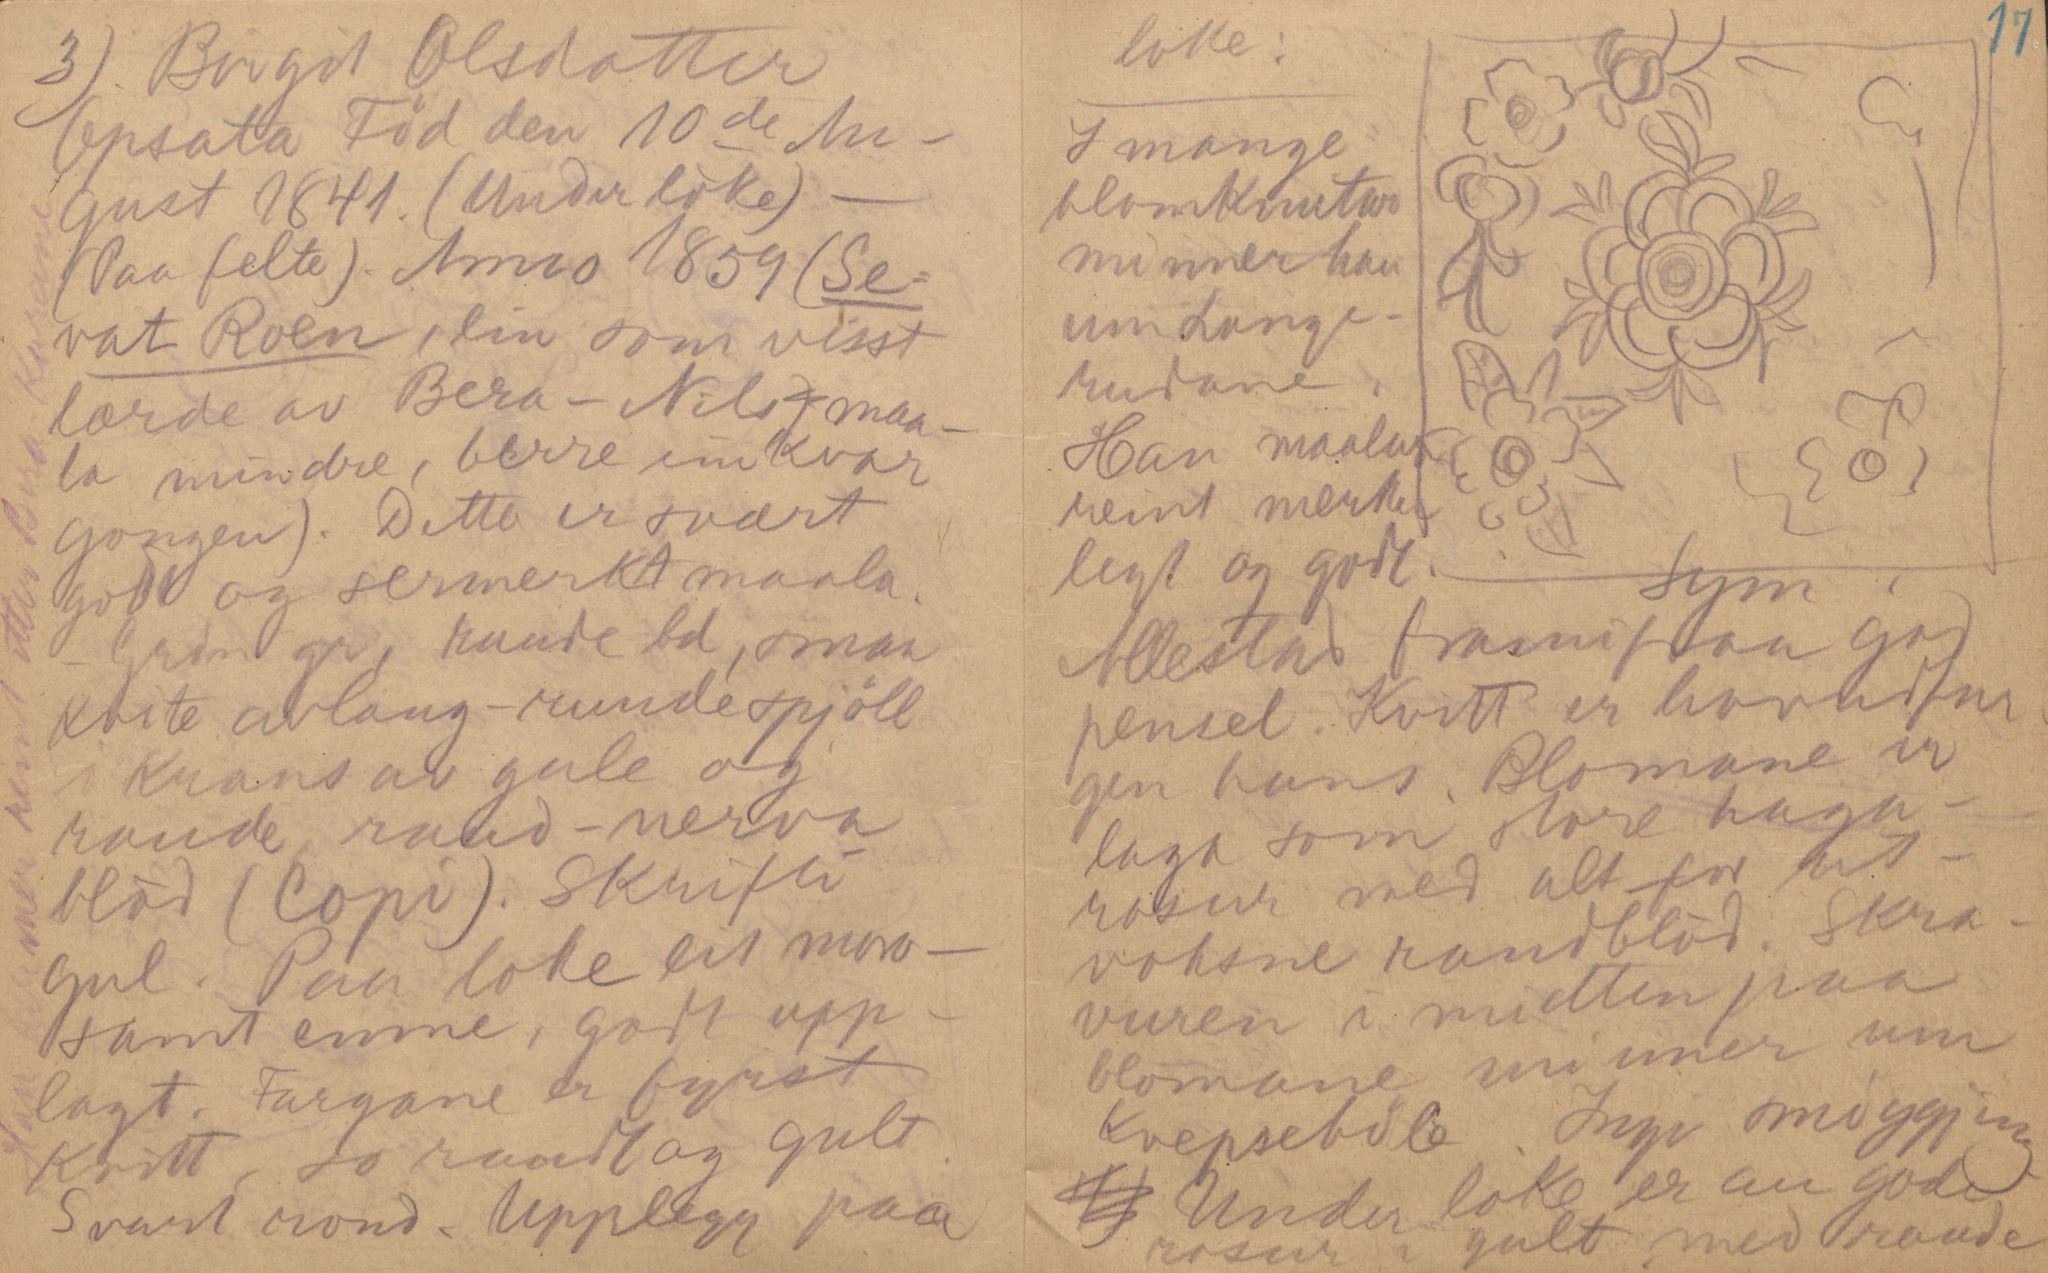 17
3). Birgit Olsdatter
Opsata Föd den 10de Au-
gust 1841. (Under loke) —
(Paa felte). Anno 1859 (Se-
vat Roen, ein som visst
lærde av Bera-Nils, maa-
la mindre, berre ein kvar
gongen). Dette er svært
godt og sermerkt maala.
- Grön gr, raude bd, smaa
kvite avlang-runde spjöll
i krans av gule og
raude, raud-nerva
blöd (Copi). Skrifti
gul. Paa loke eit moro-
samt emne, godt upp-
lagt. Fargane er fyrst
kvitt, so raudt og gult.
Svart rond. Upplegg paa
Han minner reint etter Bera-Kunane
loke:
I mange
blomknutar
minner han
um Lange-
rudane.
Han maalar
reint merke-
legt og godt.
Sym
Allestad framifraa god
pensel. Kvitt er hovudfar
gen hans. Blomane er
laga som store haga-
rosur med alt for ut-
voksne raudblöd. Skra-
vuren i midten paa
blomane minner um
kvepseböle. Ingi smöygjing
Under loke er au gode
rosur i gult med raude